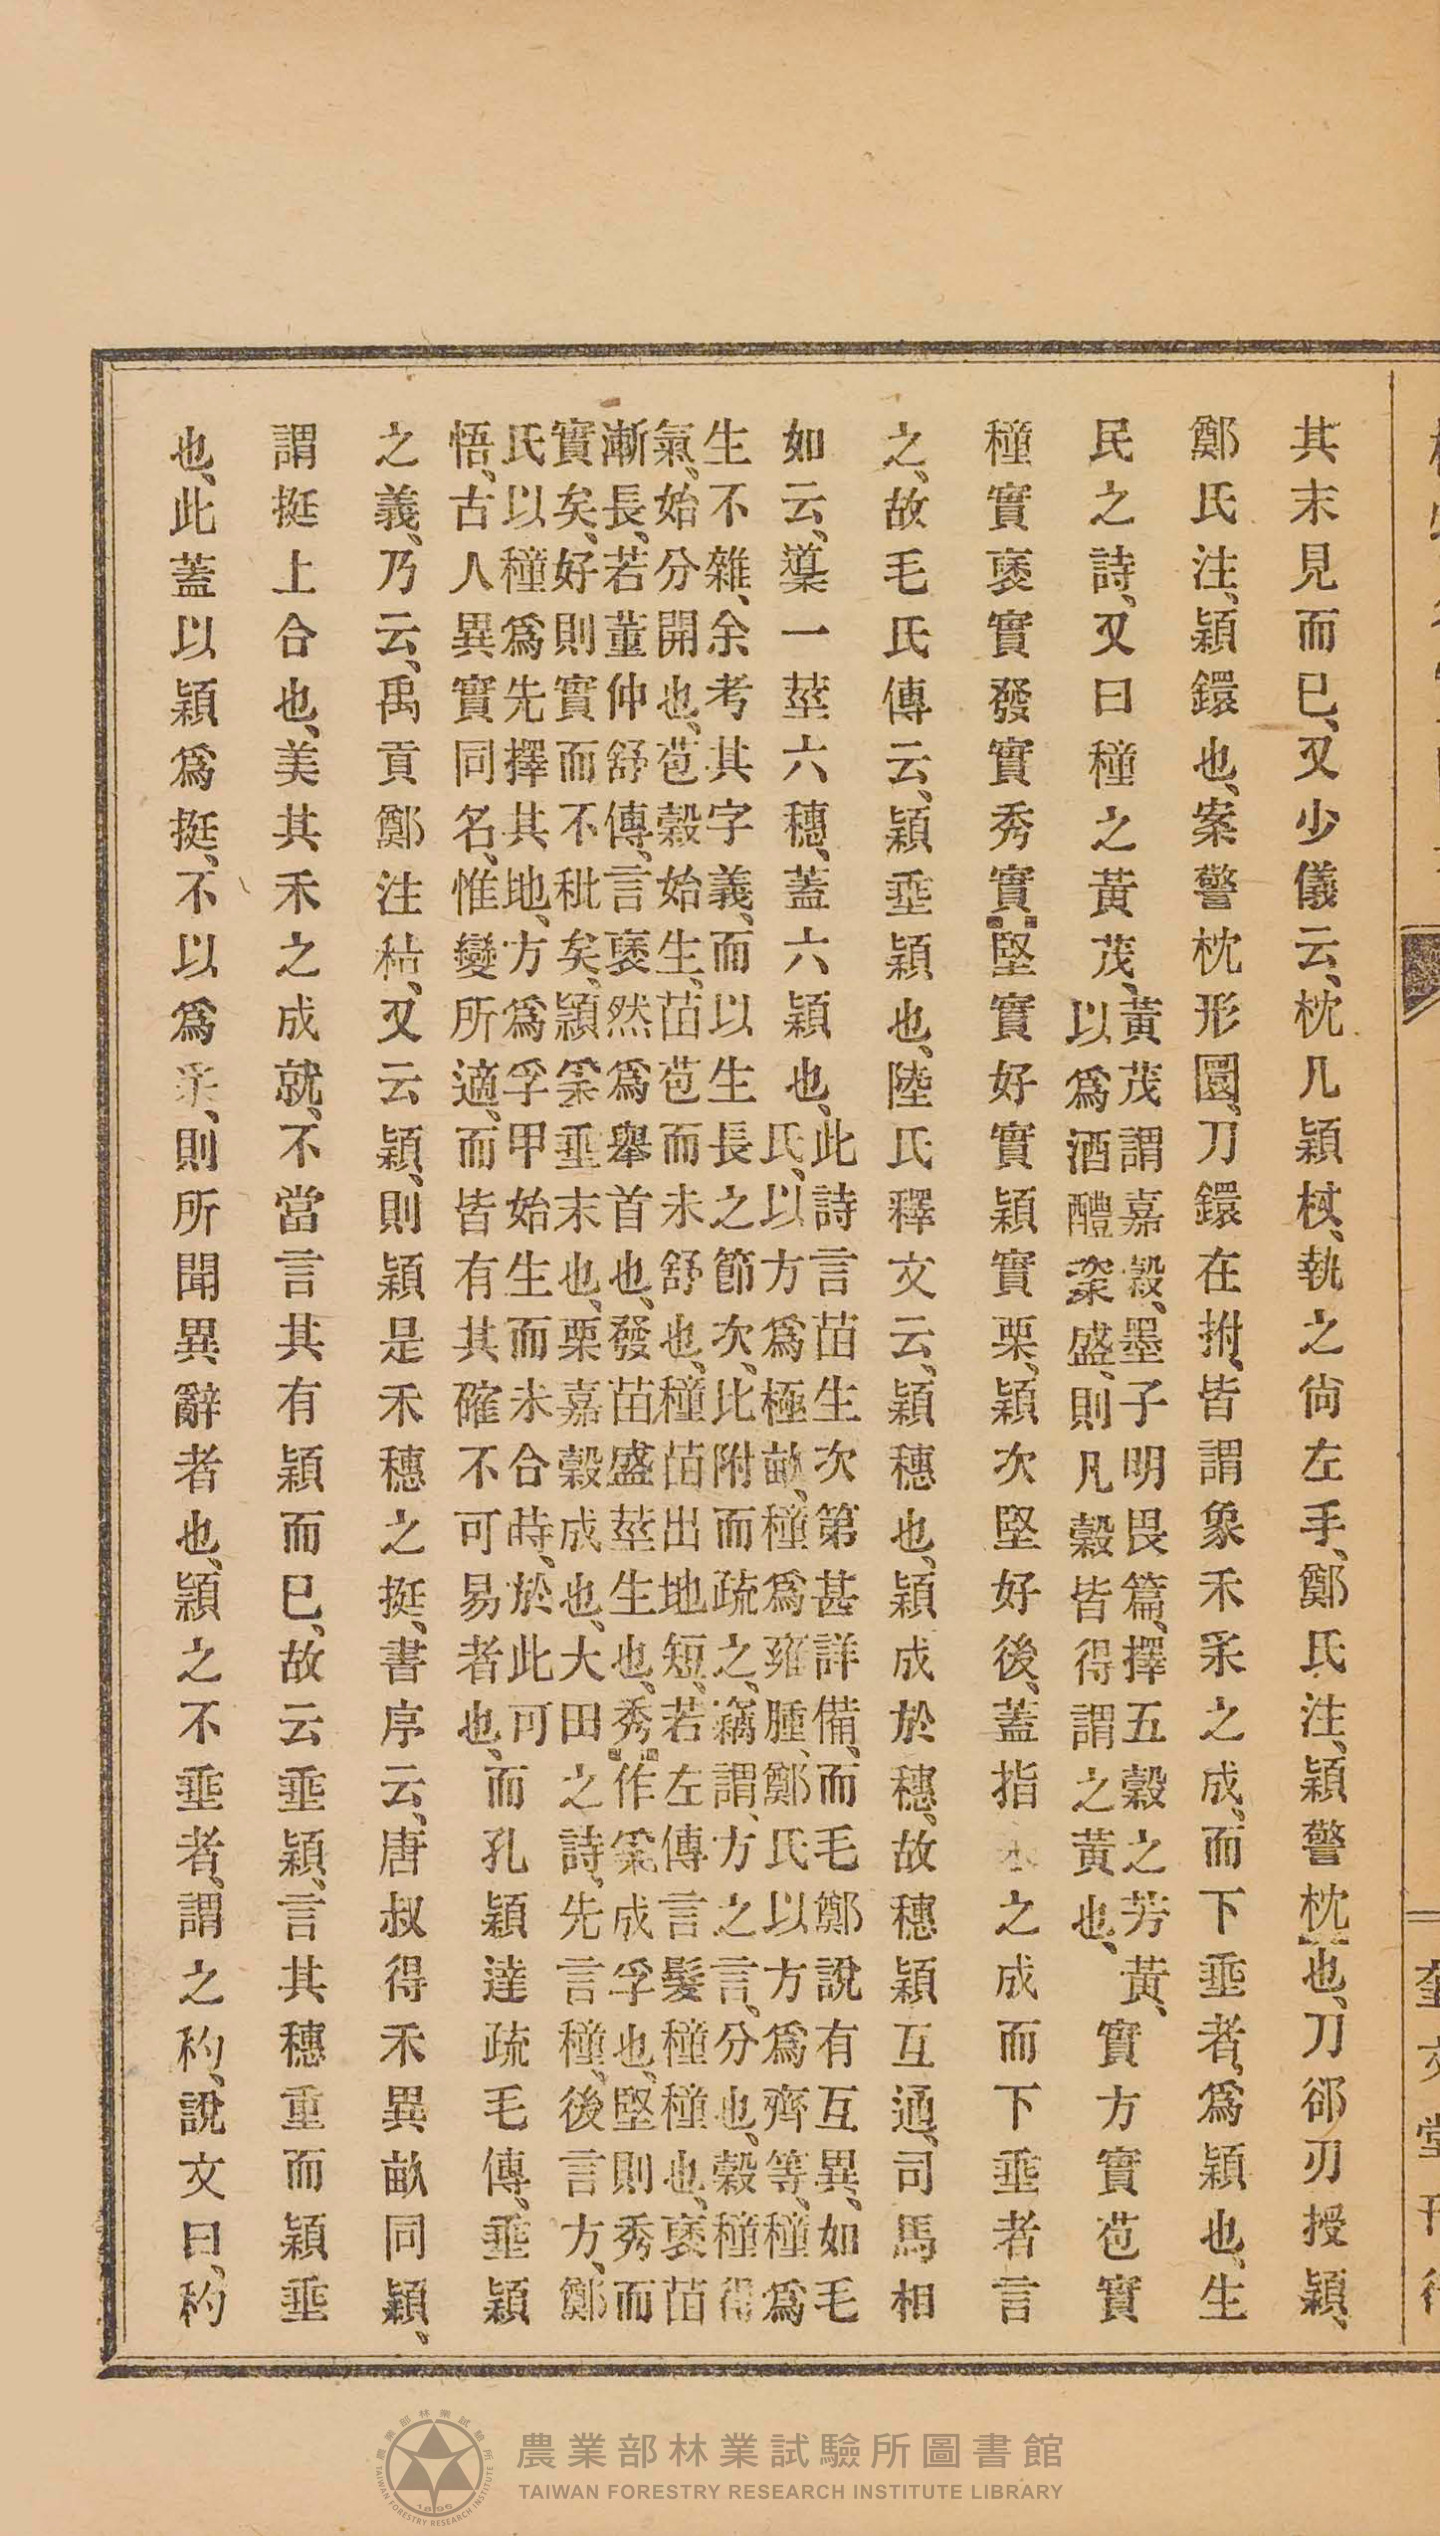 其末見而已、又少儀云、枕几穎杖、執之尙左手、鄭氏注、穎警枕也、刀郤刃授穎、
鄭氏注、穎鐶也、案警枕形圜、刀鐶在拊、皆謂象禾采之成、而下垂者、爲穎也、生
民之詩、又曰種之黃茂、黃茂謂嘉穀、墨子明畏篇、擇五穀之芳黃、
以爲酒醴粢盛、則凡穀皆得謂之黃也、實方實苞實
種實褎實發實秀實堅實好實穎實栗、穎次堅好後、蓋指之成而下垂者言
之、故毛氏傳云、穎垂穎也、陸氏釋文云、穎穗也、穎成於穗、故穗穎互通、司馬相
如云、䆃一莖六穗、蓋六穎也、此詩言苗生次第甚詳備、而毛鄭說有互異、如毛
氏、以方爲極畝、種爲雍腫、鄭氏以方爲齊等、種爲
生不雜、余考其字義、而以生長之節次、比附而疏之、竊謂、方之言、分也、穀種得
氣、始分開也、苞穀始生、苗苞而未舒也、種苗出地短、若左傳言髮種種也、褎苗
漸長、若董仲舒傳、言褎然爲舉首也、發苗盛莖生也、秀作采成孚也、堅則秀而
實矣、好則實而不秕矣、穎采垂末也、栗嘉穀成也、大田之詩、先言種、後言方、鄭
氏以種爲先擇其地、方爲孚甲始生而未合時、於此可
悟、古人異實同名、惟變所適、而皆有其確不可易者也、而孔穎達疏毛傳、垂穎
之義、乃云、禹貢鄭注秸、又云穎、則穎是禾穗之挺、書序云、唐叔得禾異畝同穎、
謂挺上合也、美其禾之成就、不當言其有穎而已、故云垂穎、言其穗重而穎垂
也、此蓋以穎爲挺、不以爲采、則所聞異辭者也、穎之不垂者、謂之秒、說文曰、秒